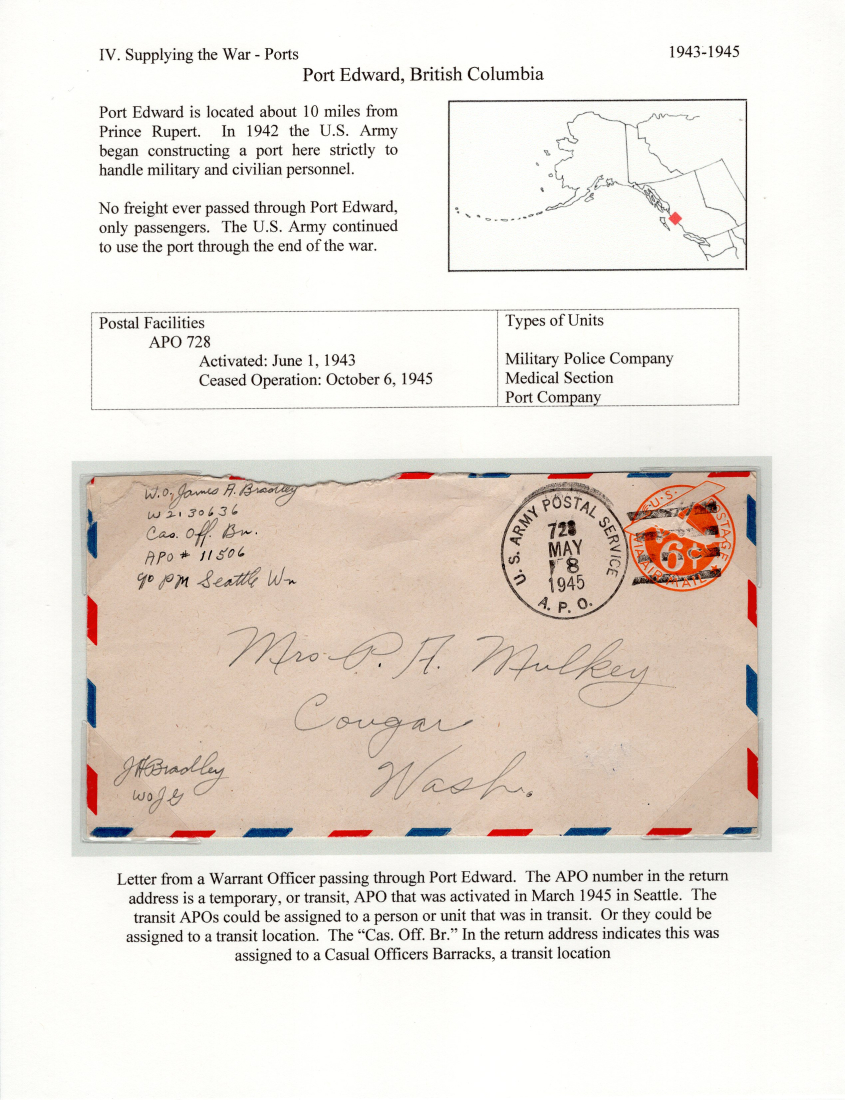 IV. Supplying the War - Ports
1943-1945
Port Edward, British Columbia
Port Edward is located about 10 miles from
Prince Rupert. In 1942 the U.S. Army
began constructing a port here strictly to
handle military and civilian personnel.
No freight ever passed through Port Edward,
only passengers. The U.S. Army continued
to use the port through the end of the war.
Postal Facilities
APO 728
Activated: June 1, 1943
Ceased Operation: October 6, 1945
Types of Units
Military Police Company
Medical Section
Port Company
W.O. James A. Bradley
W2130636
Cas. Off. Br.
APO # 11506
℅ PM Seattle Wn
U. S. ARMY POSTAL SERVICE
728
MAY
8
1945
A. P. O.
U.S. POSTAGE
6¢
VIA AIR MAIL
Mrs. P. A. Mulkey
Cougar
Wash.
JABradley
WOJG
Letter from a Warrant Officer passing through Port Edward. The APO number in the return
address is a temporary, or transit, APO that was activated in March 1945 in Seattle. The
transit APOs could be assigned to a person or unit that was in transit. Or they could be
assigned to a transit location. The “Cas. Off. Br.” In the return address indicates this was
assigned to a Casual Officers Barracks, a transit location